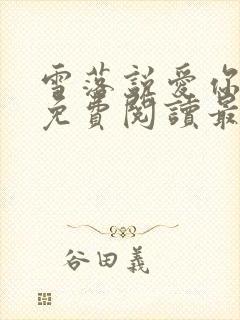 雪落說愛你
免費閱讀最
谷田義